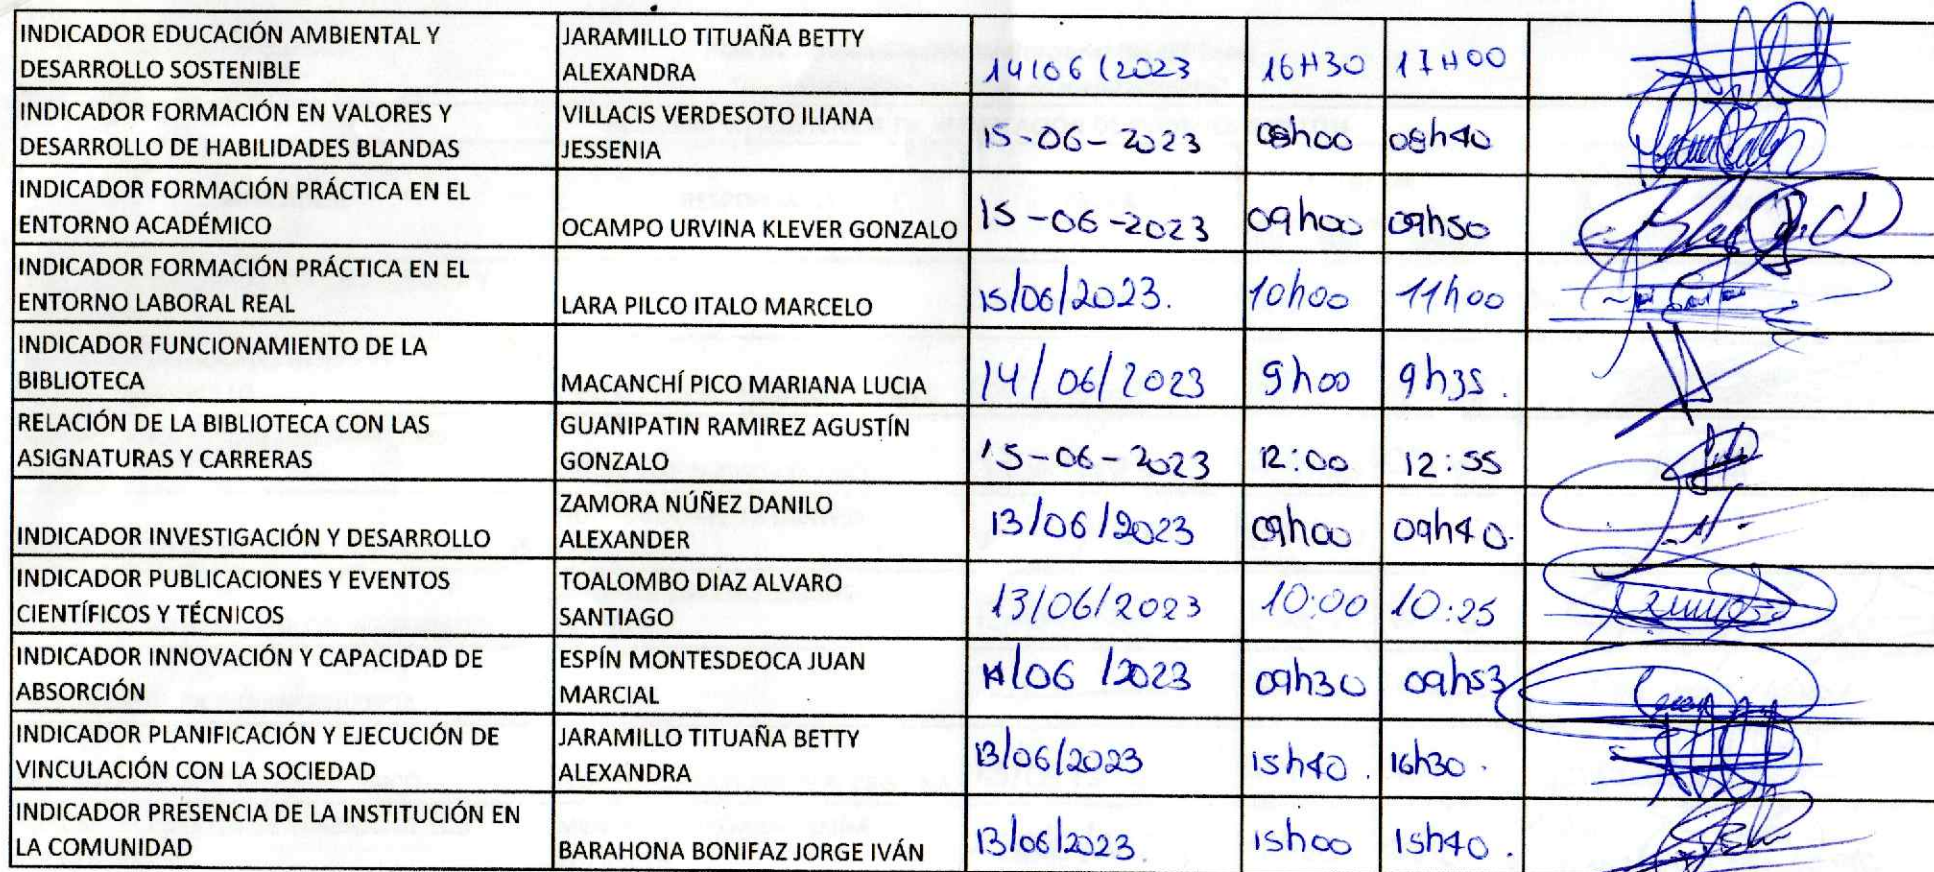 INDICADOR EDUCACIÓN AMBIENTAL Y
DESARROLLO SOSTENIBLE
JARAMILLO TITUAÑA BETTY
ALEXANDRA
14/06/2023 16H30 17H00
INDICADOR FORMACIÓN EN VALORES Y
DESARROLLO DE HABILIDADES BLANDAS
VILLACIS VERDESOTO ILIANA
JESSENIA
15-06-2023 08h00 08h40
INDICADOR FORMACIÓN PRÁCTICA EN EL
ENTORNO ACADÉMICO
OCAMPO URVINA KLEVER GONZALO
15-06-2023 09h00 09h50
INDICADOR FORMACIÓN PRÁCTICA EN EL
ENTORNO LABORAL REAL
LARA PILCO ITALO MARCELO
15/06/2023. 10h00 11h00
INDICADOR FUNCIONAMIENTO DE LA
BIBLIOTECA
MACANCHÍ PICO MARIANA LUCIA
14/06/2023 9h00 9h35.
RELACIÓN DE LA BIBLIOTECA CON LAS
ASIGNATURAS Y CARRERAS
GUANIPATIN RAMIREZ AGUSTÍN
GONZALO
15-06-2023 12:00 12:55
INDICADOR INVESTIGACIÓN Y DESARROLLO
ZAMORA NÚÑEZ DANILO
ALEXANDER
13/06/2023 09h00 09h40.
INDICADOR PUBLICACIONES Y EVENTOS
CIENTÍFICOS Y TÉCNICOS
TOALOMBO DIAZ ALVARO
SANTIAGO
13/06/2023 10:00 10:25
INDICADOR INNOVACIÓN Y CAPACIDAD DE
ABSORCIÓN
ESPÍN MONTESDEOCA JUAN
MARCIAL
09h30 09h53
INDICADOR PLANIFICACIÓN Y EJECUCIÓN DE
VINCULACIÓN CON LA SOCIEDAD
JARAMILLO TITUAÑA BETTY
ALEXANDRA
13/06/2023 15h40. 16h30.
INDICADOR PRESENCIA DE LA INSTITUCIÓN EN
LA COMUNIDAD
BARAHONA BONIFAZ JORGE IVÁN
13/06/2023. 15h00 15h40.